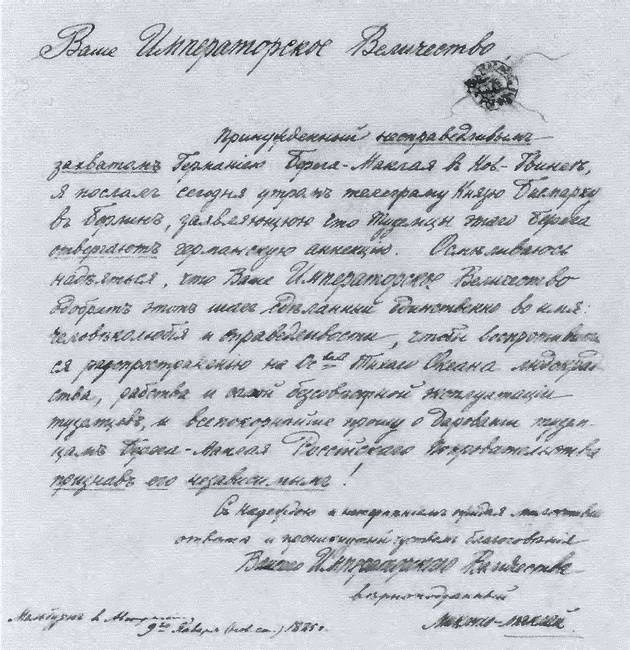 Ваше Императорское Величество,
Принужденный несправедливымъ
захватомъ Германіею Берега-Маклая въ Нов. Гвинеѣ,
я послалъ сегодня утромъ телеграму Князю Бисмарку
въ Берлинъ, заявляющую что туземцы этого Берега
отвергаютъ германскую аннекцію. Осмѣливаюсь
надѣяться, что Ваше Императорское Величество
одобритъ этотъ шагъ сдѣланный единственно во имя
человѣколюбія и справедливости, чтобы воспротивить-
ся распространенію на Ос-ва Тихаго Океана людокрад-
ства, рабства и самой безсовѣстной эксплуатаціи
туземцевъ, и всепокорнѣйше прошу о дарованіи тузем-
цамъ Берега-Маклая Россійскаго покровительства
признавъ его независимымъ!
Съ надеждою и нетерпѣніемъ ожидая
отвѣта и чувствомъ благоговенія
Вашего Императорскаго Величества
вѣрноподданный
Миклухо-Маклай.
Мельбурнъ въ
9го Января (нов. ст.) 1885 г.